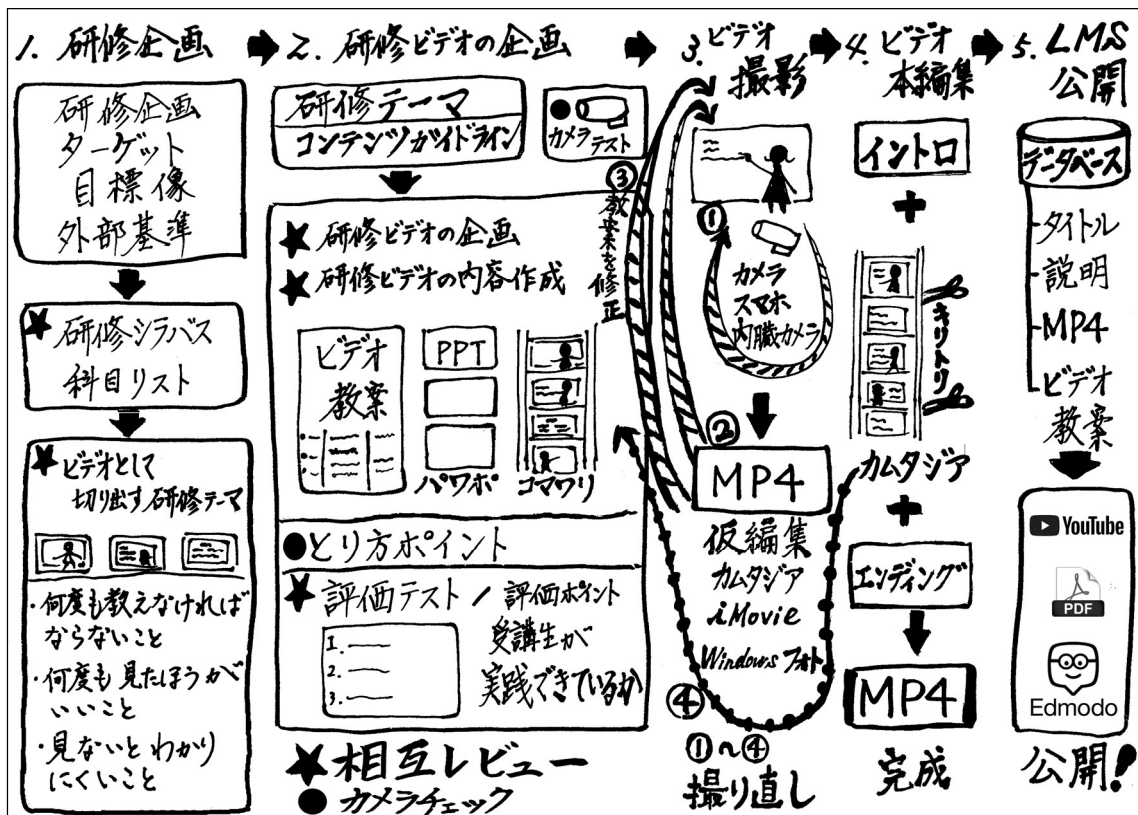 1. 研修企画
研修企画
ターゲット
目標像
外部基準
★ 研修シラバス
科目リスト
★ ビデオとして
切り出す研修テーマ
・何度も教えなければ
ならないこと
・何度も見たほうが
いいこと
・見ないとわかり
にくいこと
2. 研修ビデオの企画
研修テーマ
コンテンツガイドライン
● カメラテスト
★ 研修ビデオの企画
★ 研修ビデオの内容作成
ビデオ
教案
PPT
パワポ
コマワリ
●とり方ポイント
★ 評価テスト / 評価ポイント
1.
2.
3.
受講生が
実践できているか
★相互レビュー
● カメラチェック
③
教案を修正
3. ビデオ
撮影
①
カメラ
スマホ
内臓カメラ
②
MP4
仮編集
カムタジア
iMovie
Windows フォト
④
①〜④
撮り直し
4. ビデオ
本編集
イントロ
+
キリトリ
カムタジア
+
エンディング
MP4
完成
5. LMS
公開
データベース
-タイトル
-説明
-MP4
-ビデオ
教案
YouTube
PDF
Edmodo
公開!